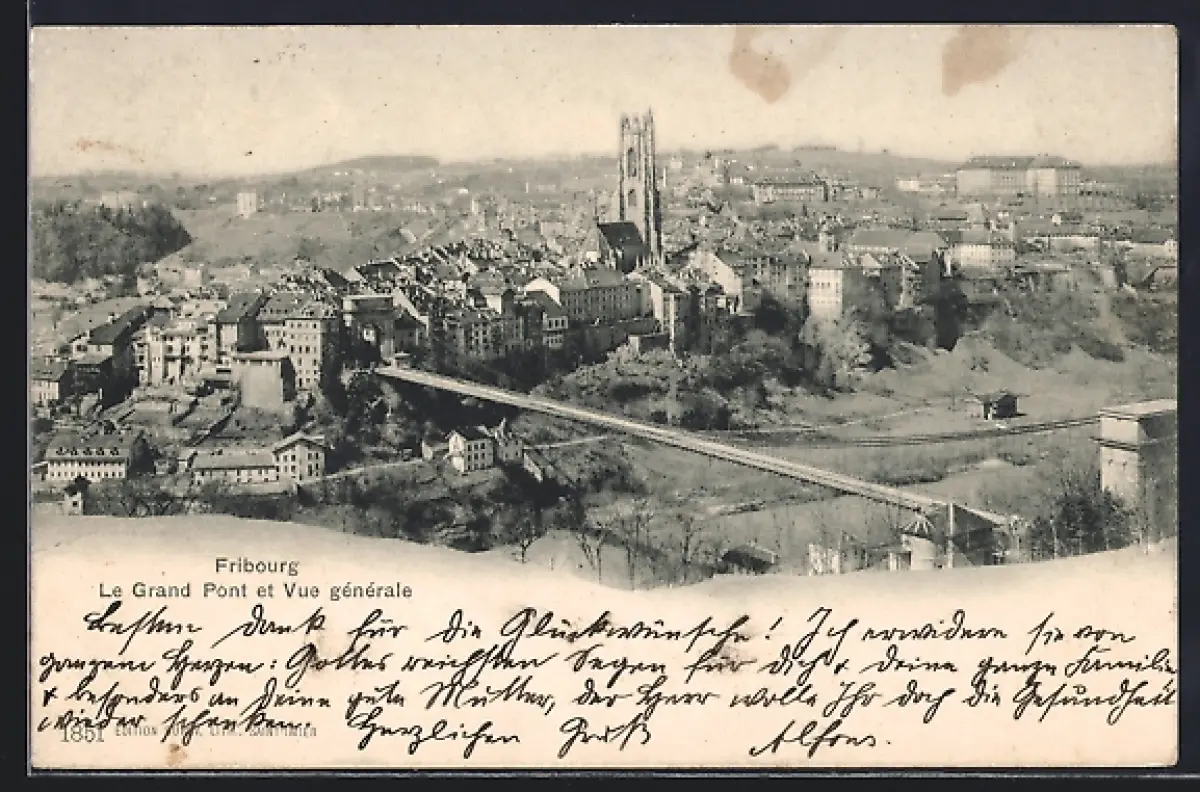 Fribourg
Le Grand Pont et Vue générale
Besten Dank für die Glückwünsche! Ich erwidere sie von
ganzem Herzen: Gottes reichsten Segen für dich & deine ganze Familie
& besonders an Deine gute Mutter, der Herr wolle Ihr doch die Gesundheit
wieder schenken. Herzlichen Gruß Alfons.
1851 EDITION LITH. SAINT-IMIER